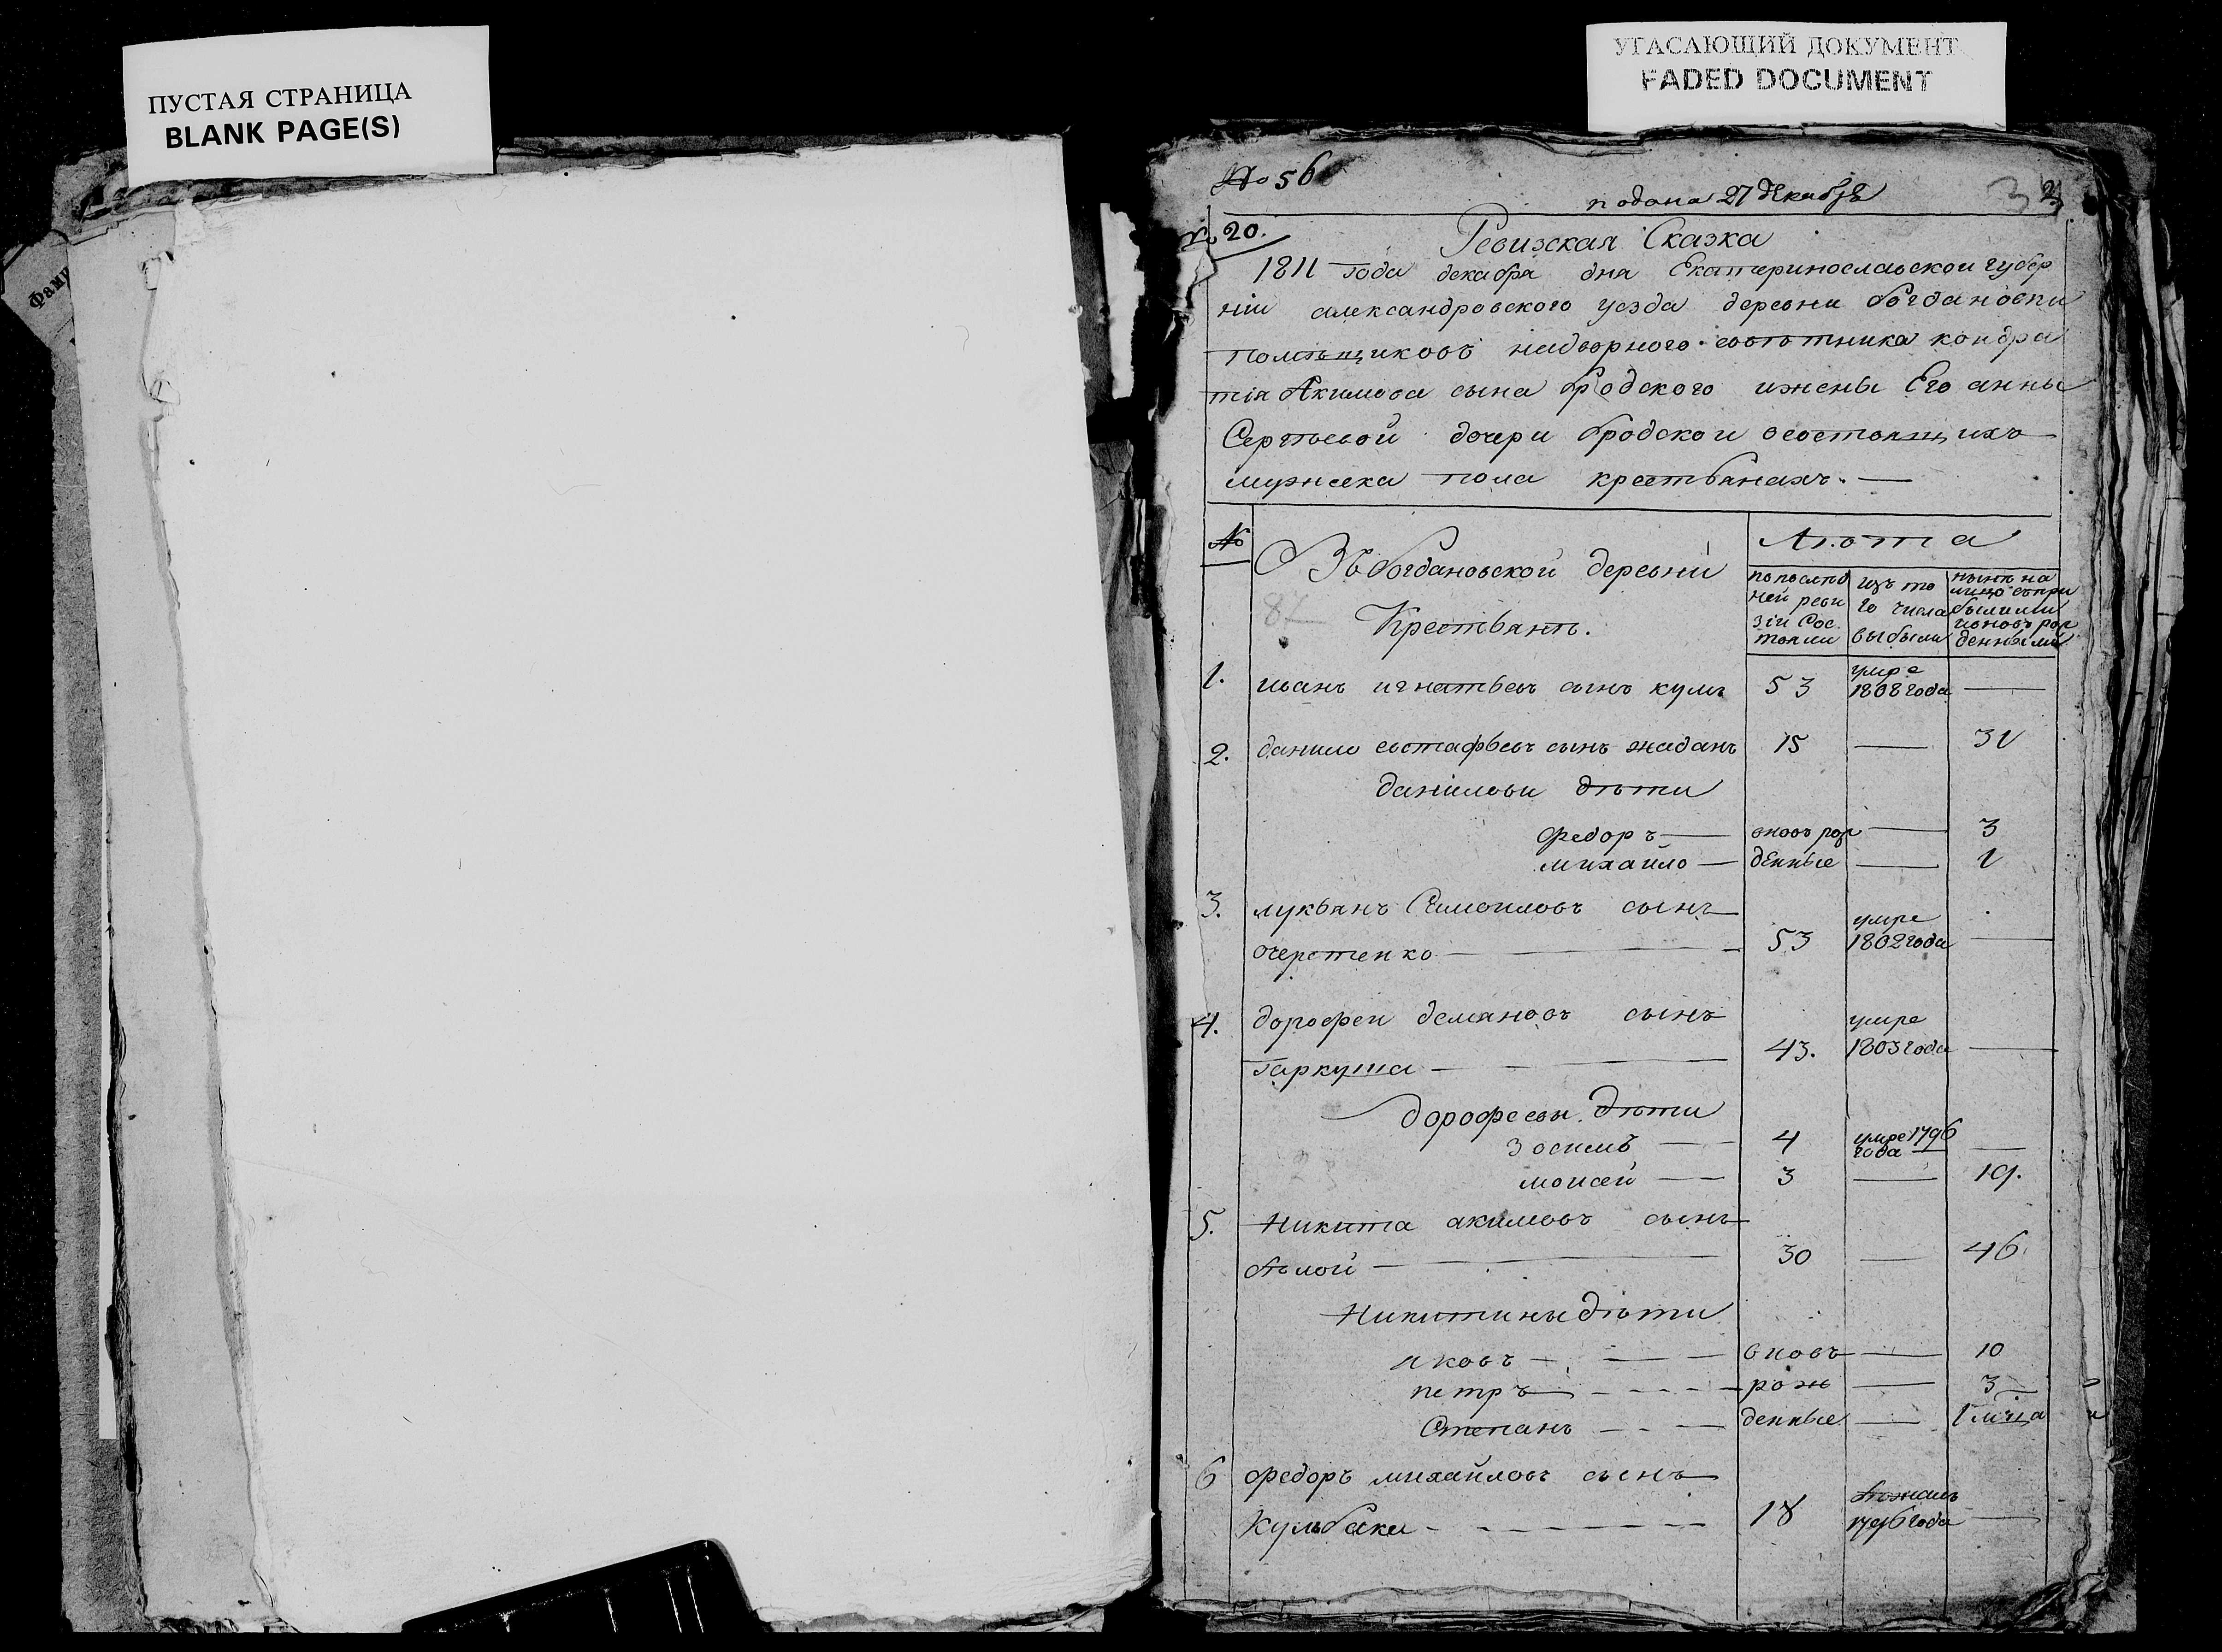 ПУСТАЯ СТРАНИЦА
BLANK PAGE(S)
УГАСАЮЩИЙ ДОКУМЕНТ
FADED DOCUMENT
№ 56
подана 27 декабря
№ 20.
Ревизская Сказка
1811 года декабря дня Екатеринославской губер
нiи александровского уезда деревни богдановки
помѣщиковъ надворного совѣтника кондра
тія Акимова сына бродского ижены Его анны
Сергѣевой дочери бродской осостоящихъ
мужеска пола крестьянахъ. —
№
Въ богдановской деревни
Крестьянъ.
Лѣта
попослѣд
ней реви
зіи Сос
тояли
изъ то
го числа
выбыли
нынѣ на
лицо съпри
былими
иновь рож
денными
1. иванъ игнатьевъ сынъ кумъ 53 умре 1808 года —
2. данило евстафьевъ сынъ жаданъ 15 — 31
данилови дѣти
федоръ — вновь рож — 3
михайло — денные — 1
3. лукьянъ Самоиловъ сынъ
очеретенко — 53 умре 1802 года —
4. дорофей демяновъ сынъ
гаркуша — 43. умре 1803 года —
дорофеевы дѣти
зосимъ — 4 умре 1796 года —
моисей — 3 — 19.
5. Никита акимовъ сынъ
бѣлой — 30 — 46
Никитины дѣти
яковъ — вновь — 10
петръ — рож — 3
Степанъ — денные — 1 мѣца
6 федоръ михайловъ сынъ
Кульбака — 18 бѣжалъ 1796 года —